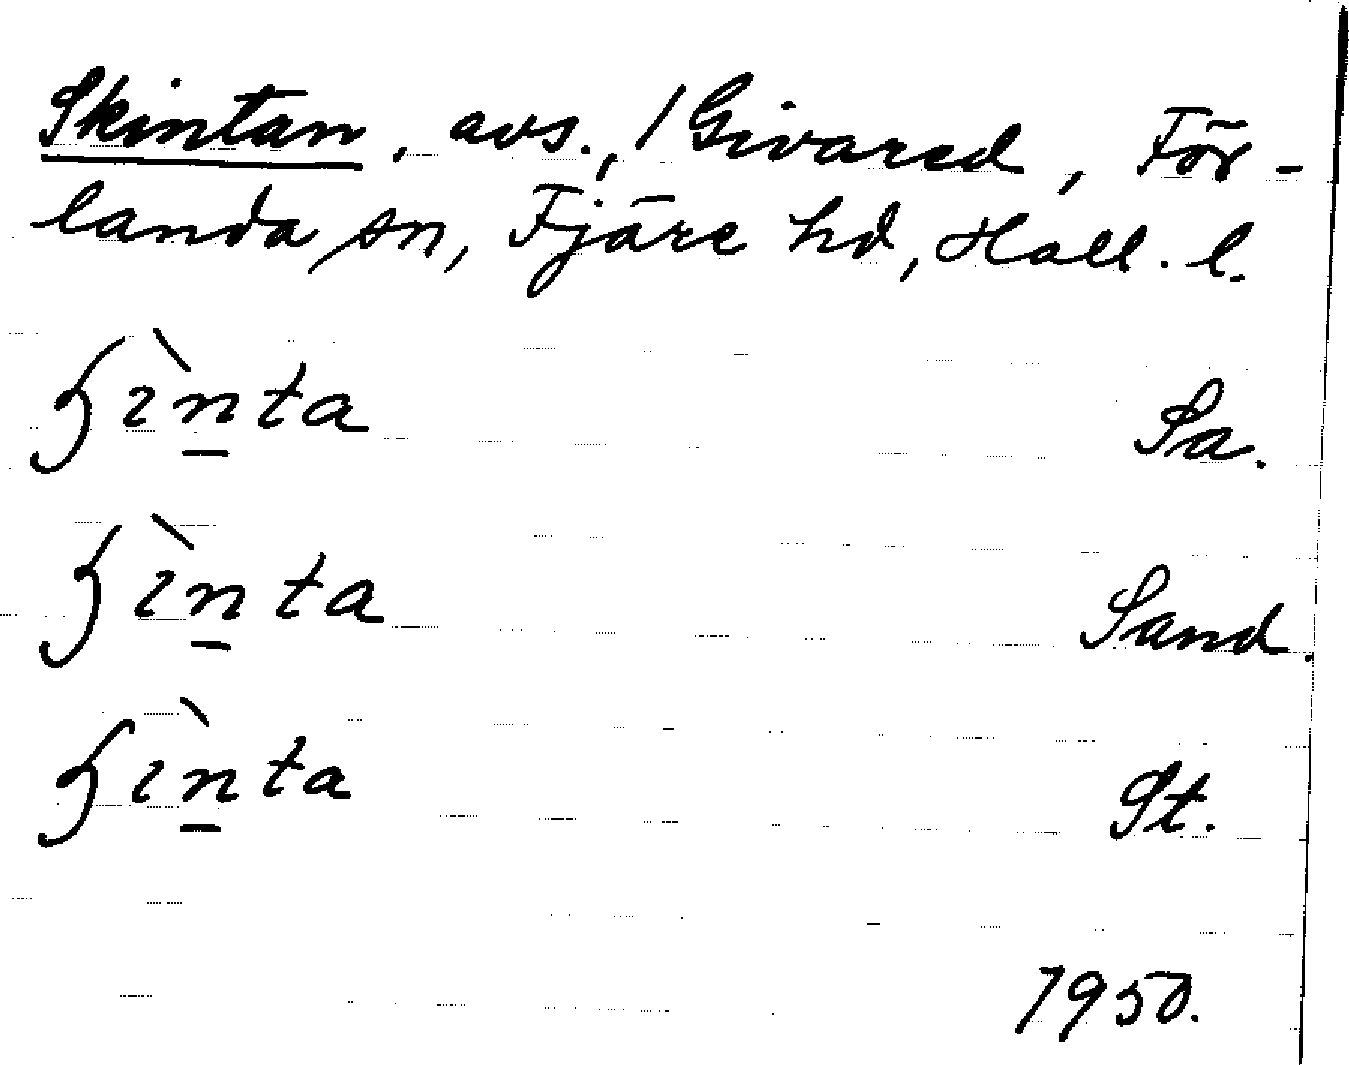 Skintan, avs., /Givared, För-
landa sn, Fjäre hd, Hall. l.
ʃìn̲ta Sa.
ʃìn̲ta Sand.
ʃìn̲ta St.
1950.